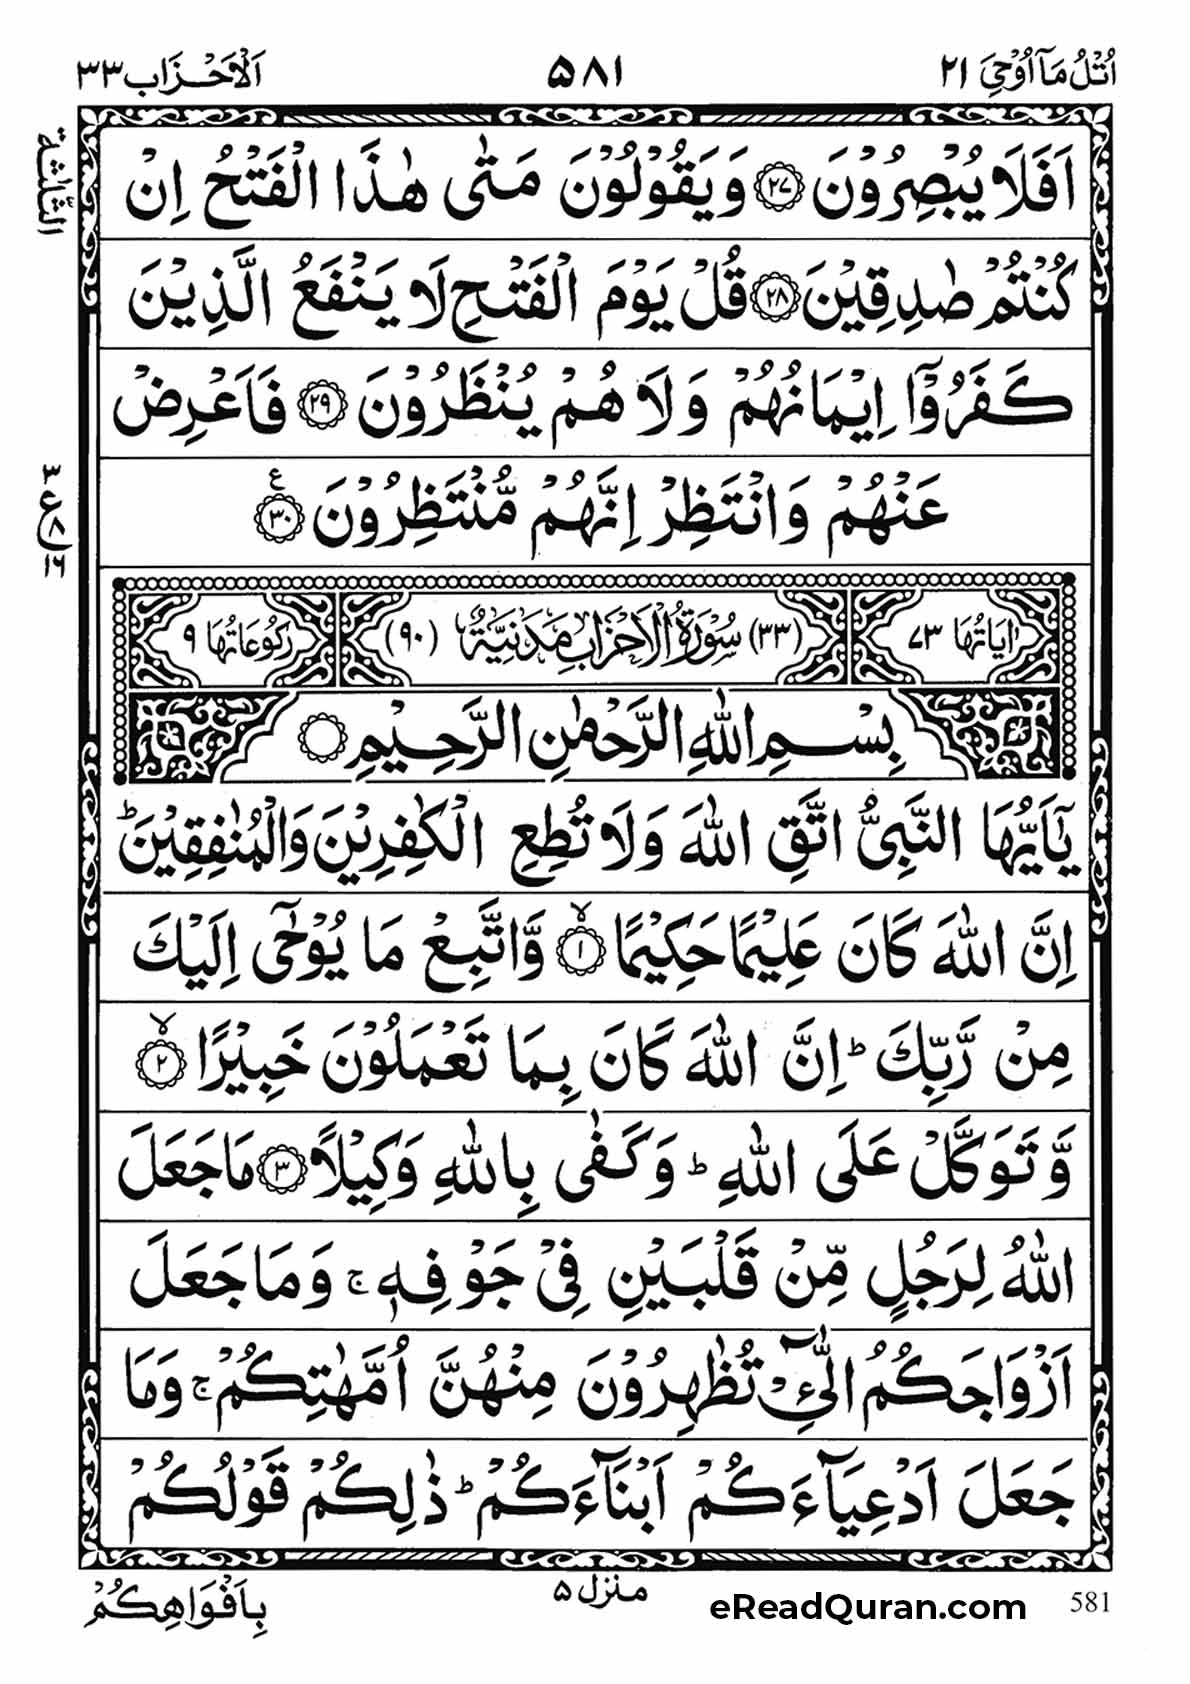 اُتْلُ مَآ اُوْحِیَ ۲۱
۵۸۱
اَلْاَحْزَاب ۳۳
الثلثة
اَفَلَا يُبْصِرُوْنَ ۲۷ وَيَقُوْلُوْنَ مَتٰى هٰذَا الْفَتْحُ اِنْ
كُنْتُمْ صٰدِقِيْنَ ۲۸ قُلْ يَوْمَ الْفَتْحِ لَا يَنْفَعُ الَّذِيْنَ
كَفَرُوْٓا اِيْمَانُهُمْ وَلَا هُمْ يُنْظَرُوْنَ ۲۹ فَاَعْرِضْ
عَنْهُمْ وَانْتَظِرْ اِنَّهُمْ مُّنْتَظِرُوْنَ ۳۰ ع
۳
ع ۸
۱۶
اٰيَاتُهَا ۷۳
(۳۳) سُوْرَةُ الْاَحْزَابِ مَدَنِيَّةٌ (۹۰)
رُكُوْعَاتُهَا ۹
بِسْمِ اللهِ الرَّحْمٰنِ الرَّحِيْمِ
يٰٓاَيُّهَا النَّبِىُّ اتَّقِ اللهَ وَلَا تُطِعِ الْكٰفِرِيْنَ وَالْمُنٰفِقِيْنَ ؕ
اِنَّ اللهَ كَانَ عَلِيْمًا حَكِيْمًا ۙ ۱ وَّاتَّبِعْ مَا يُوْحٰٓى اِلَيْكَ
مِنْ رَّبِّكَ ؕ اِنَّ اللهَ كَانَ بِمَا تَعْمَلُوْنَ خَبِيْرًا ۙ ۲
وَّتَوَكَّلْ عَلَى اللهِ ؕ وَكَفٰى بِاللهِ وَكِيْلًا ۳ مَا جَعَلَ
اللهُ لِرَجُلٍ مِّنْ قَلْبَيْنِ فِىْ جَوْفِهٖ ۚ وَمَا جَعَلَ
اَزْوَاجَكُمُ الّٰٓـئِْ تُظٰهِرُوْنَ مِنْهُنَّ اُمَّهٰتِكُمْ ۚ وَمَا
جَعَلَ اَدْعِيَآءَكُمْ اَبْنَآءَكُمْ ؕ ذٰلِكُمْ قَوْلُكُمْ
بِاَفْوَاهِكُمْ
منزل ۵
eReadQuran.com
581